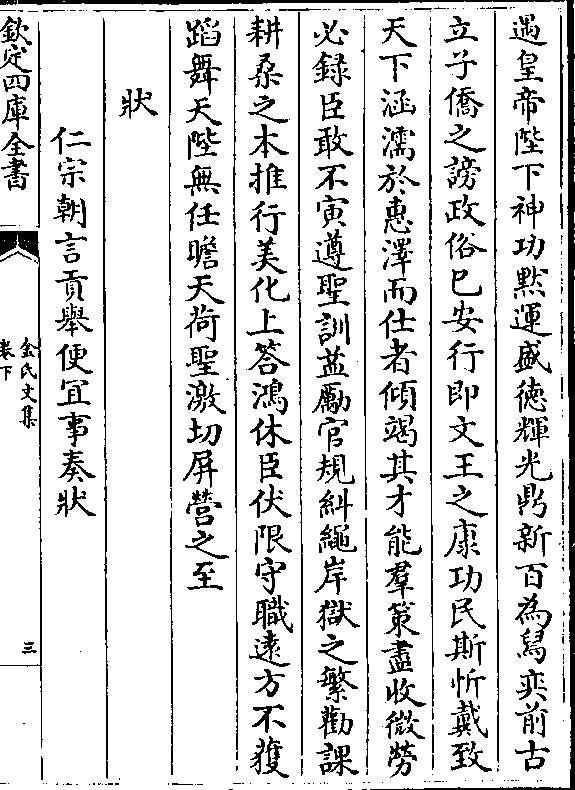 遇皇帝陛下神功黙運盛徳輝光鼎新百為舄奕前古
立子僑之謗政俗已安行即文王之康功民斯忻戴致
天下涵濡於惠澤而仕者傾竭其才能羣策盡收微勞
必録臣敢不寅遵聖訓益勵官規糾繩岸獄之繁勸課
耕桑之本推行美化上答鴻休臣伏限守職逺方不獲
蹈舞天陛無任瞻天荷聖激切屏營之至
狀
仁宗朝言貢舉便宜事奏狀
欽定四庫全書
金氏文集
卷下
三